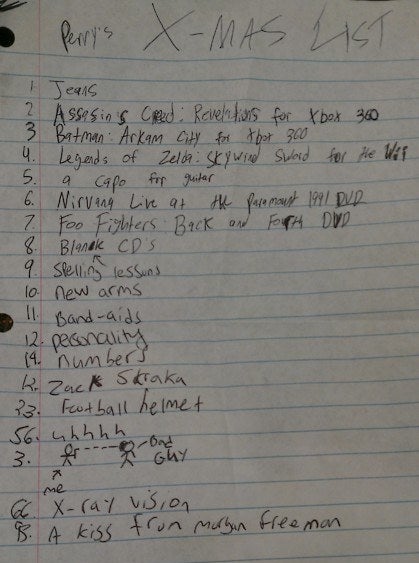 Perry's X-MAS LIST
1. Jeans
2. Assasin's Creed: Revelations for Xbox 360
3 Batman: Arkam City for Xbox 360
4. Legends of Zelda: Skywind Sword for the Wii
5. a capo for guitar
6. Nirvana Live at the Paramount 1991 DVD
7. Foo Fighters Back and Forth DVD
8. Blank CD's
9. Spelling lessons
10. new arms
11. Band-aids
12. personality
14. numbers
12. Zack Skraka
23. Football helmet
56. uhhhh
3. Bad
Guy
me
66. X-ray vision
93. A kiss from morgan freeman